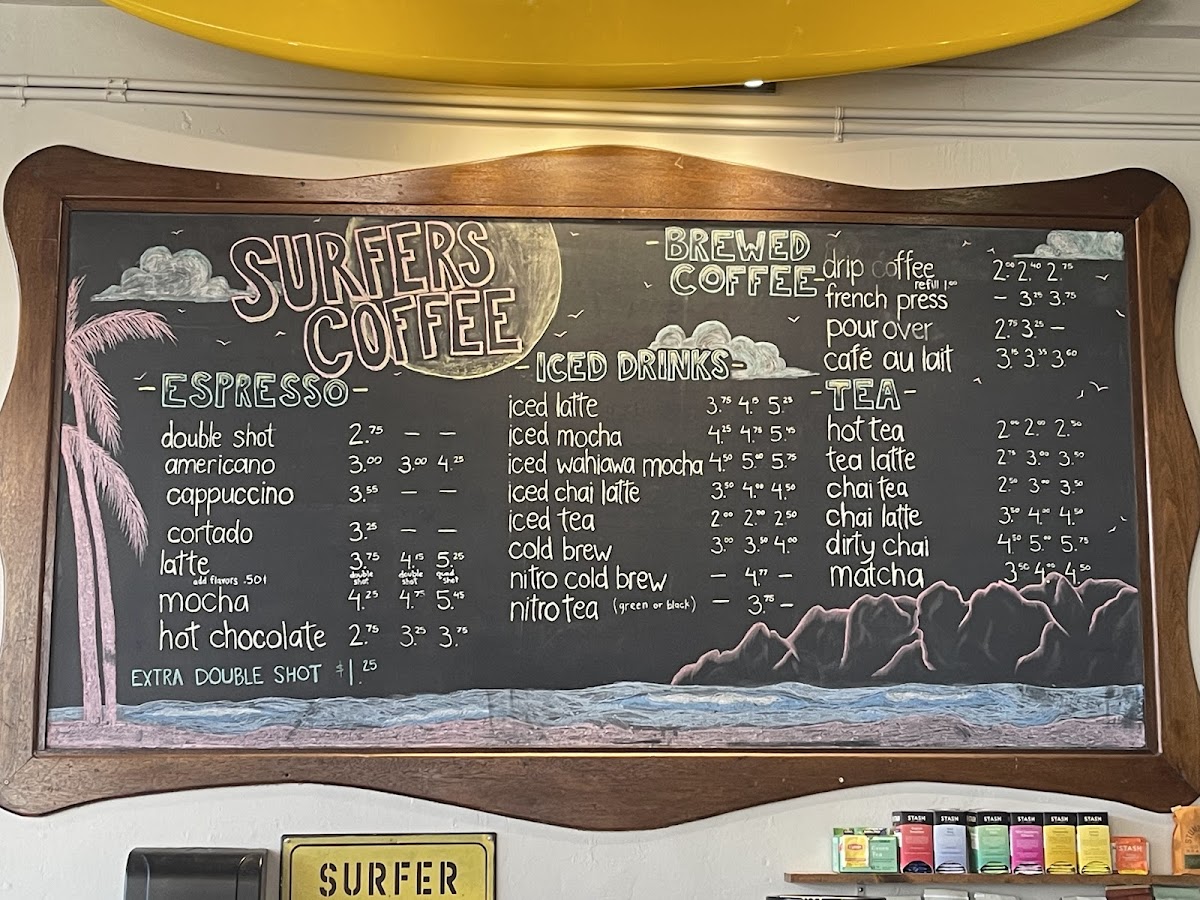 SURFERS
COFFEE
-ESPRESSO-
double shot 2.75 — —
americano 3.00 3.00 4.25
cappuccino 3.55 — —
cortado 3.25 — —
latte 3.75 4.15 5.25
add flavors .50¢ double shot double shot quad shot
mocha 4.25 4.75 5.45
hot chocolate 2.75 3.25 3.75
EXTRA DOUBLE SHOT $1.25
-ICED DRINKS-
iced latte 3.75 4.15 5.25
iced mocha 4.25 4.75 5.45
iced wahiawa mocha 4.50 5.00 5.75
iced chai latte 3.50 4.00 4.50
iced tea 2.00 2.00 2.50
cold brew 3.00 3.50 4.00
nitro cold brew — 4.77 —
nitro tea (green or black) — 3.75 —
-BREWED
COFFEE-
drip coffee 2.00 2.40 2.75
refill 1.00
french press — 3.25 3.75
pour over 2.75 3.25 —
café au lait 3.15 3.35 3.60
-TEA-
hot tea 2.00 2.00 2.50
tea latte 2.75 3.00 3.50
chai tea 2.50 3.00 3.50
chai latte 3.50 4.00 4.50
dirty chai 4.50 5.00 5.75
matcha 3.50 4.00 4.50
SURFER
Lipton
Green Tea
STASH
STASH
STASH
STASH
STASH
STASH
STASH